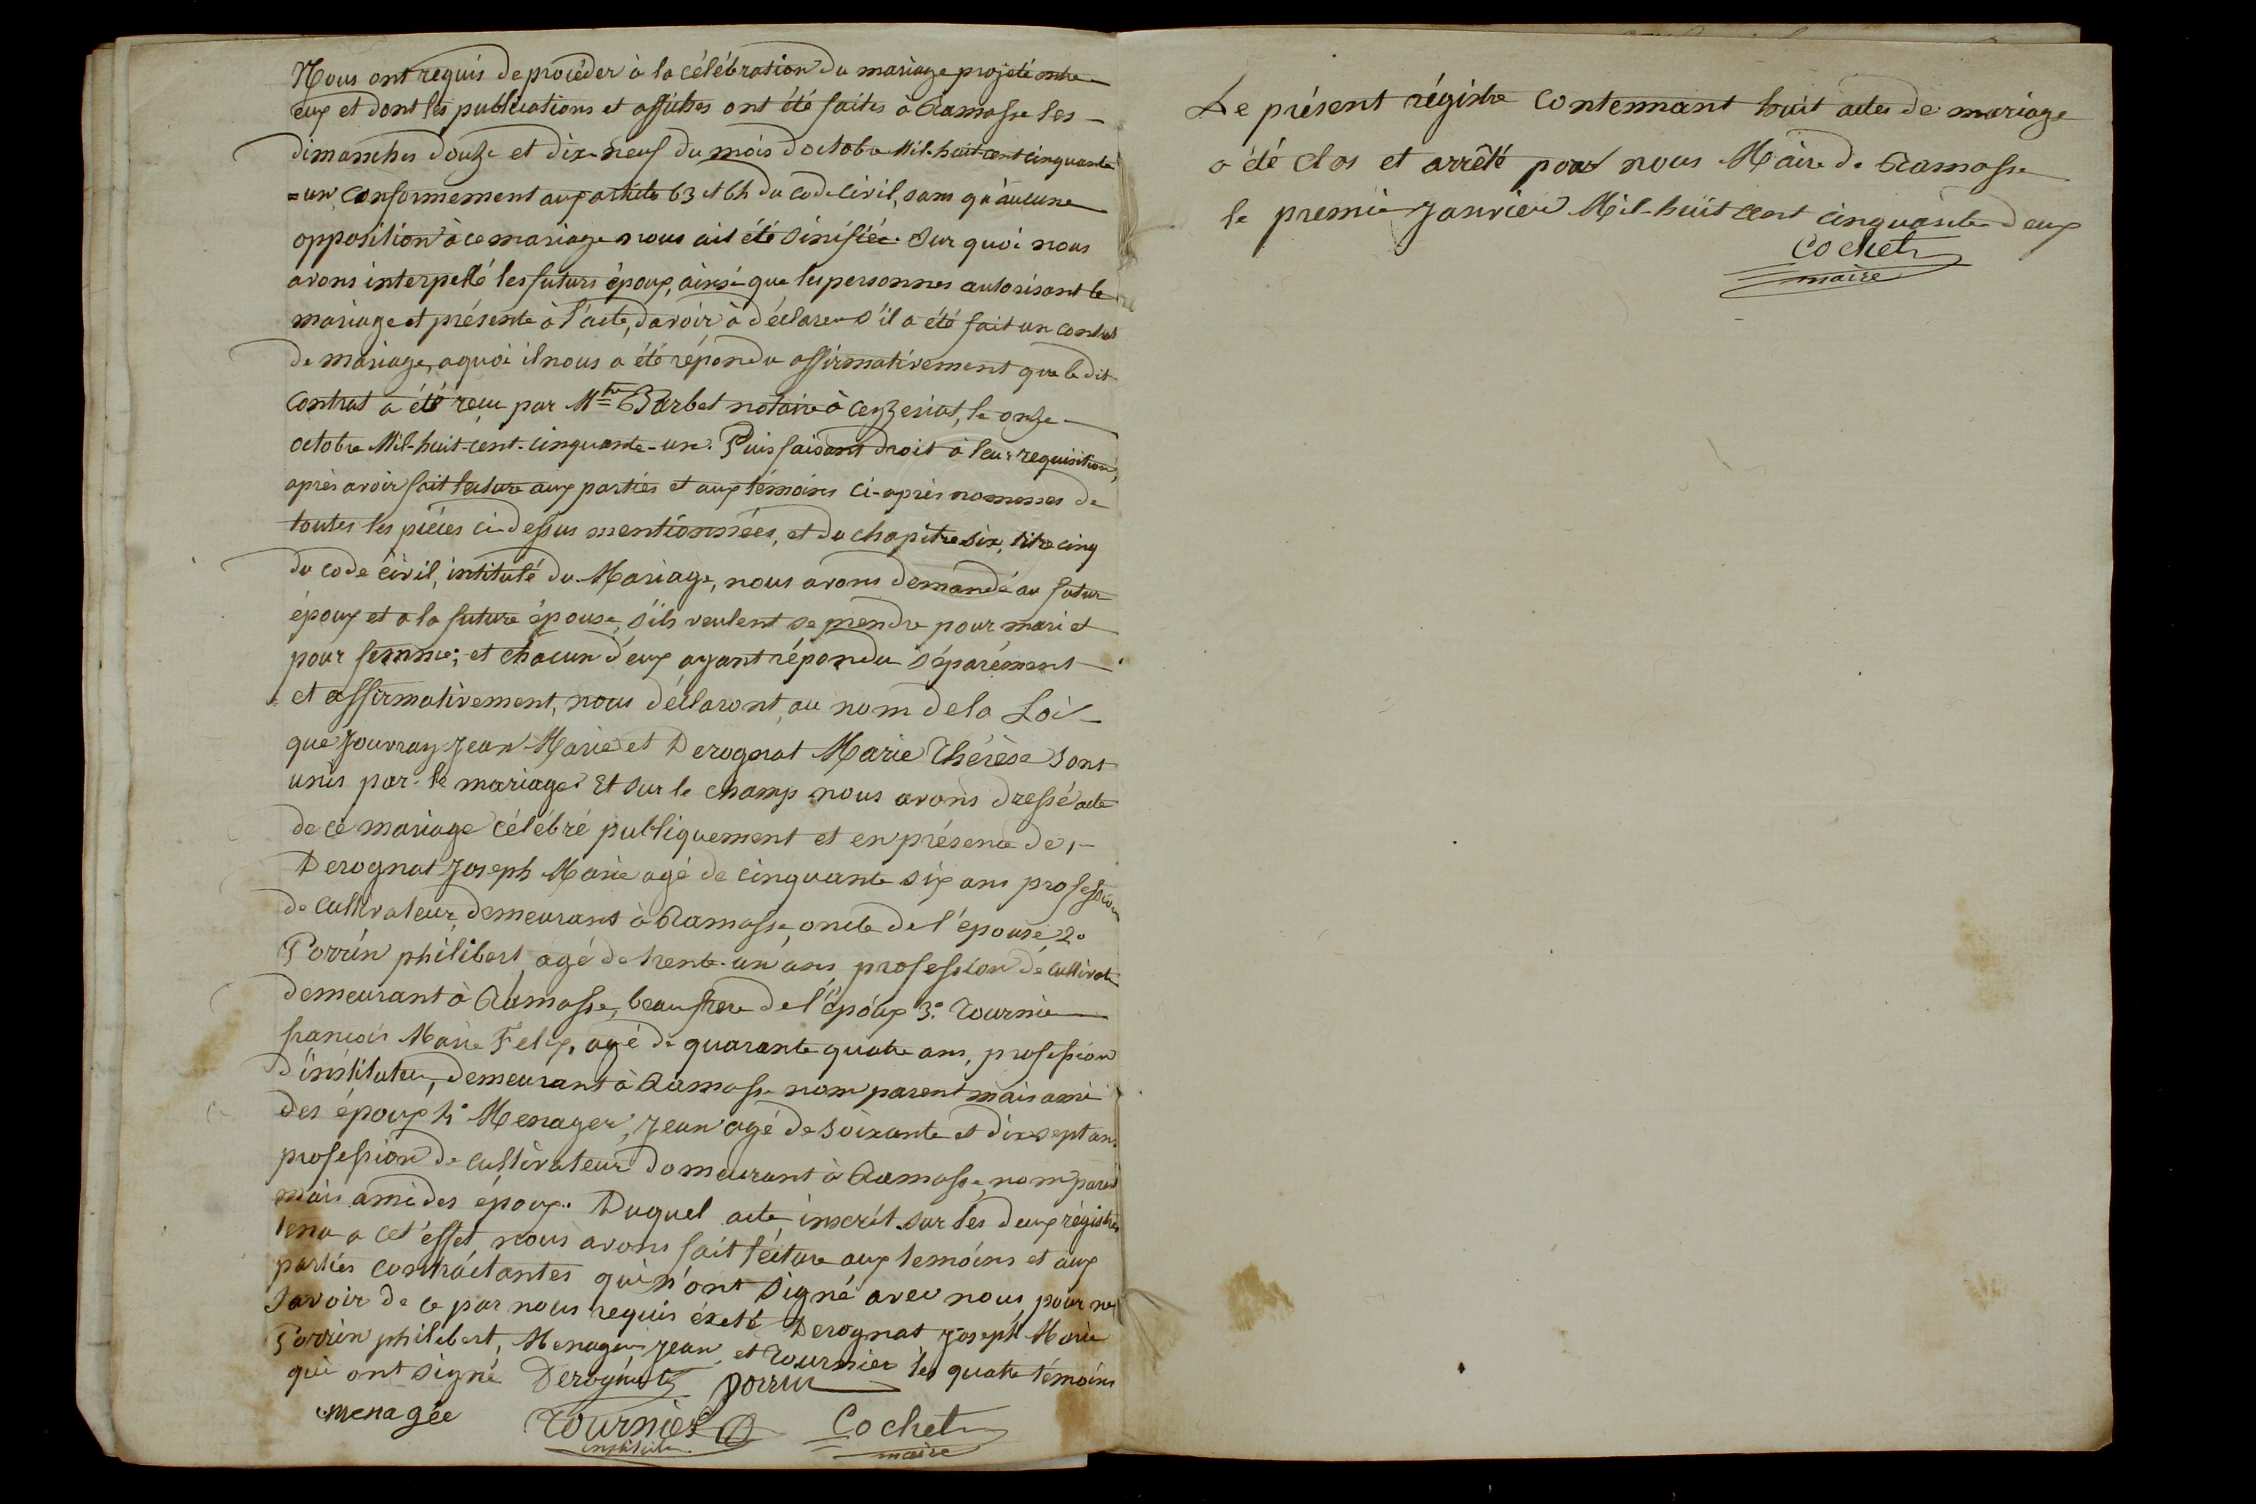 Nous ont requis de procéder à la célébration du mariage projeté entre
eux et dont les publications et affiches ont été faites à Ramasse les
dimanches douze et dix-neuf du mois d'octobre Mil-huit-cent cinquante
=un conformement aux articles 63 et 64 du code civil, sans qu'aucune
opposition à ce mariage nous ait été sinifiée. Sur quoi nous
avons interpellé les futurs époux, ainsi que les personnes autorisant le
mariage et présente à l'acte, d'avoir à déclarer s'il a été fait un contrat
de mariage, a quoi il nous a été répondu affirmativement que le dit
contrat a été reçu par Mtre Barbet notaire à Ceyzeriat, le onze
octobre Mil-huit-cent-cinquante-un. Puis faisant droit à leur requisition,
après avoir fait lecture aux parties et aux témoins ci-après nommés de
toutes les pièces ci dessus mentionnées, et du chapitre six, titre cinq
du code civil, intitulé du Mariage, nous avons demandé au futur
époux et a la future épouse, s'ils veulent se prendre pour mari et
pour femme; et chacun d'eux ayant répondu séparément
et affirmativement, nous déclaront au nom de la Loi
que Jouvray Jean Marie et Derognat Marie Thérèse sont
unis par le mariage. Et sur le champ nous avons dressé acte
de ce mariage célébré publiquement et en présence de, 1°
Derognat Joseph Marie agé de cinquante six ans profession
de cultivateur, demeurant à Ramasse, oncle de l'épouse, 2°
Porrin philibert, agé de trente-un ans, profession de cultivat
demeurant à Ramasse, beau frere de l'époux 3.° Tournier
francois Marie Felix, agé de quarante quatre ans, profession
d'instituteur, demeurant à Ramasse nom parent mais ami
des époux 4° Menager, Jean agé de soixante et dix sept ans
profession de cultivateur domeurant à Ramasse, nom parent
mais ami des époux. Duquel acte, inscrit sur les deux régistres
tenu a cet effet nous avons fait lecture aux temoins et aux
parties contractantes qui n'ont signé avec nous pour ne
savoir de ce par nous requis éxcté Derognat Joseph Marie
Porrin philibert, Menager Jean et Tournier les quatre témoins
qui ont signé Derognat Porrin
menagée Tournier Cochet
instituteur maire
Le présent régistre contennant huit actes de mariage
a été clos et arrêté par nous Maire de Ramasse
le premier Janvier Mil-huit cent cinquante deux
Cochet
maire